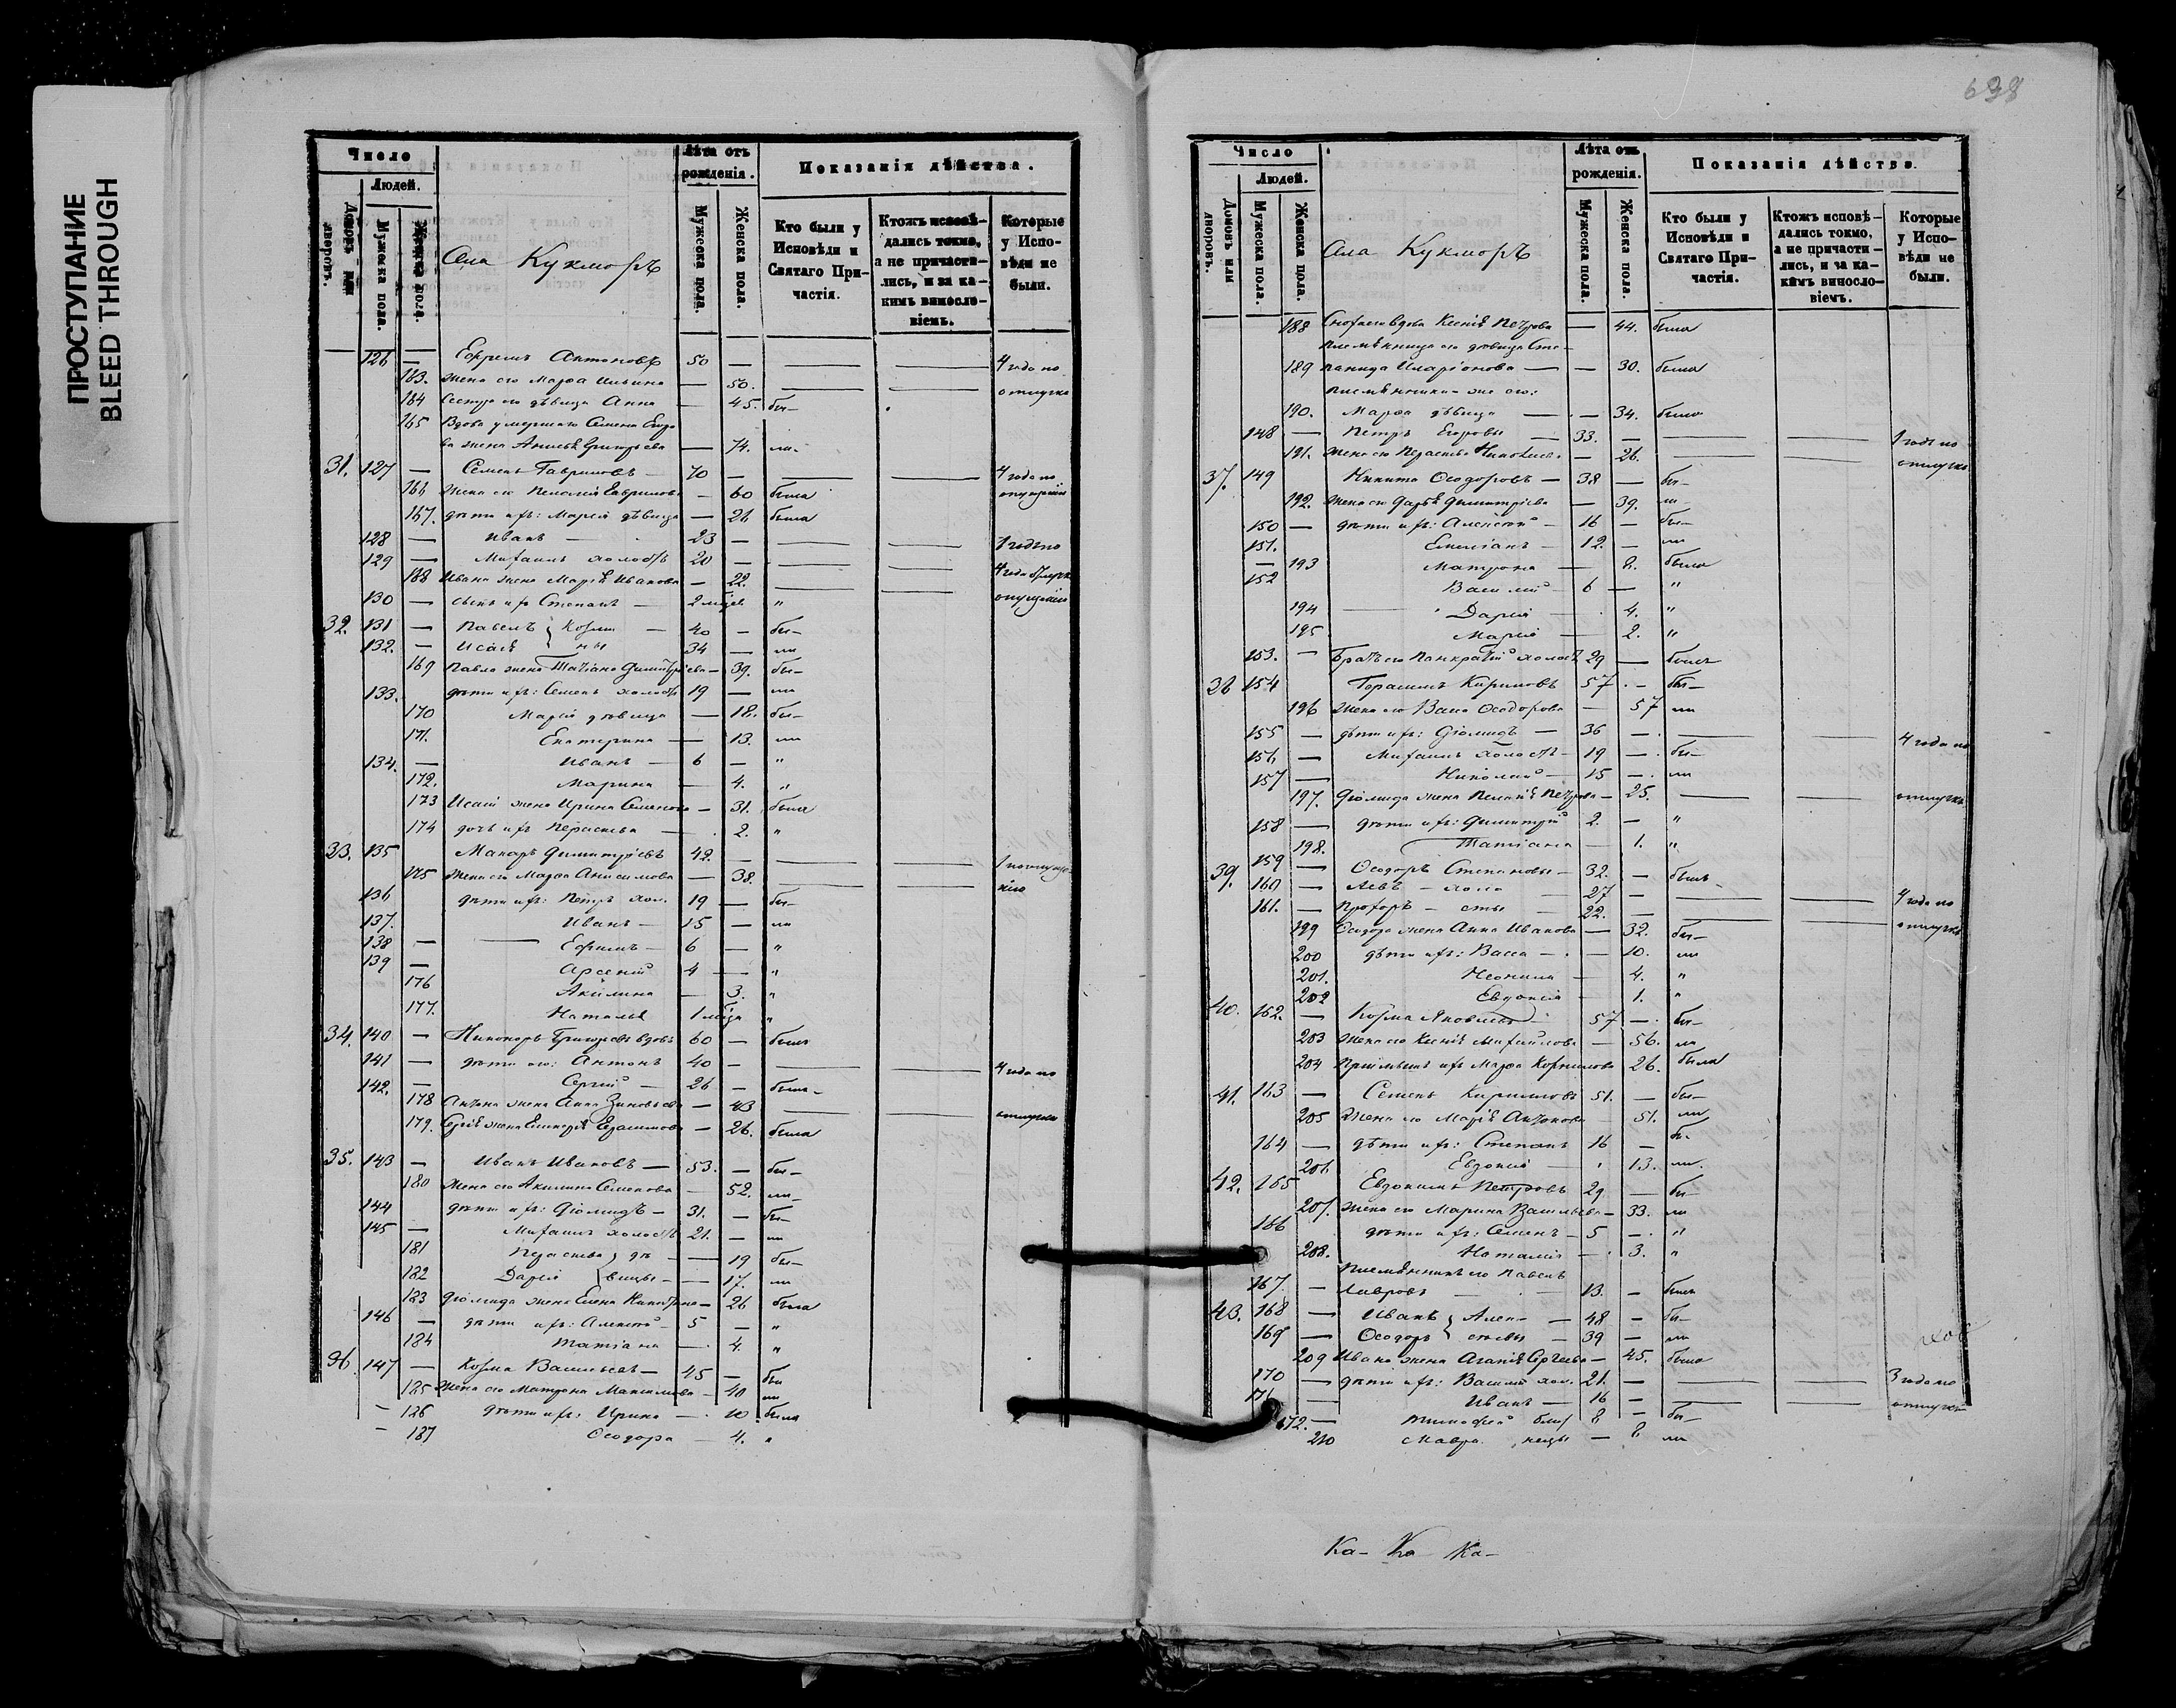 ПРОСТУПАНИЕ
BLEED THROUGH
Число
Людей.
Домовъ или дворовъ.
Мужеска пола.
Женска пола.
Села Кукморъ
Лѣта отъ рожденія.
Мужеска пола.
Женска пола.
Показанія дѣйства.
Кто были у Исповѣди и Святаго Причастія.
Ктожъ исповѣдались токмо, а не причастились, и за какимъ винословіемъ.
Которые у Исповѣди не были.
126 — Ефремъ Антоновъ 50 — — — 4 года по
163. жена его Марѳа Ильина — 50. — — отлучке
164 Сестра его дѣвица Анна — 45. бы—
165 Вдова умершаго Семена
ва жена — 74. ла.
31. 127 — Семенъ Гавриловъ — 70 — — — 4 года по
166 жена его — 60 была опущенію
167. дѣти ихъ: Марія дѣвица — 26 была
128 — Иванъ — 23 — — — 1 годъ по
129 — Михаилъ холостъ 20 — — —
168 Ивана жена Марія Иванова — 22. — —
130 — сынъ ихъ Степанъ — 2 мѣсяц "
32. 131 — Павелъ } Козми — 40 — бы—
132. — Исаія } ны 34 — ли
169 Павла жена Татіана Димитріева — 39. бы—
133. дѣти ихъ: Семенъ холостъ 19 — ли
170 Марія дѣвица — 18. бы—
171. Екатерина — 13. ли
134. — Иванъ — 6 — "
172. Марина — 4. "
173 Исаіи жена Ирина Семенова — 31. была
174 дочь ихъ Параскева — 2. "
33. 135 Макаръ Димитріевъ 42. — — —
175 жена его Марѳа Анисимова — 38. — —
136 дѣти ихъ: Петръ хол. 19 — бы—
137. Иванъ — 15 — ли
138 — Ефимъ — 6 — "
139 — Арсеній 4 — "
176 Акилина — 3. "
177. Наталья "
34. 140 — Никоноръ Григорьевъ вдовъ 60 — былъ
141 — дѣти его: Антонъ 40 — — — 4 года по
142. — Сергій — 26 — былъ
178 Антона жена Анна Зиновьева — 43 — — отлучке
179. Сергія жена — 26. была
35. 143 — Иванъ Ивановъ — 53. — бы—
180 жена его Акилина Семенова 52. ли
144 дѣти ихъ: Діомидъ — 31. — бы—
145 — Михаилъ холостъ 21. — ли
181 Параскева } дѣ — 19 бы—
182 Дарія } вицы — 17. ли
183 Діомида жена Елена — 26 была
146 — дѣти ихъ: Алексѣй 5 — "
184 Татіана — 4. "
36. 147 — Козма Васильевъ — 45 — бы
185 жена его Матрона — 40 ли
— 186 дѣти ихъ: Ирина — 10 была
— 187 Ѳеодора — 4. "
638
Число
Людей.
Домовъ или дворовъ.
Мужеска пола.
Женска пола.
Села Кукморъ
Лѣта отъ рожденія.
Мужеска пола.
Женска пола.
Показанія дѣйства.
Кто были у Исповѣди и Святаго Причастія.
Ктожъ исповѣдались токмо, а не причастились, и за какимъ винословіемъ.
Которые у Исповѣди не были.
188 вдова Ксенія Петрова — 44. была
племянница его дѣвица Сте—
189 панида Иларіонова — — 30. была
племянники же его:
190. Марѳа дѣвица — 34. была
148 — Петръ Егоровы — 33. — — — 1 годъ по
191. жена его Параскева — 26. — — отлучке
37. 149 Никита Ѳеодоровъ — 38 — бы—
192. жена его Дарья Димитріева — 39. ли—
150 — дѣти ихъ: Алексѣй — 16 — бы—
151. Емеліанъ — 12. — ли
— 193 Матрона — 8. была
152 Василій — 6 — "
194 — Дарія — 4. "
195 Марія — 2. "
153. — Братъ его Панкратій холостъ 29 — былъ
38 154 Герасимъ Кириловъ 57. — бы—
196 жена его Васса Ѳеодорова — 57 ли
155 — дѣти ихъ: Діомидъ — 36 — — — 4 года по
156 — Михаилъ холостъ — 19 — бы—
157 — Николай — 15 — ли
197. Діомида жена Пелагія Петрова — 25. — — отлучке
158 — дѣти ихъ: Димитрій 2. — "
198. Татіана — 1. "
39. 159 — Ѳеодоръ Степановы — 32. — былъ
160 — Левъ — холо — 27 — — — 4 года по
161. — Прохоръ — сты — 22. — — — отлучке
199 Ѳеодора жена Анна Иванова — 32. бы—
200 дѣти ихъ: Васса — — 10. ли
201. Неонила — 4. "
202 Евдокія — 1. "
40. 162. — Козма Яковлевъ 57 — бы—
203 жена его Ксенія Михайлова — 56. ла
204 ихъ Марѳа Корнилова 26. была
41. 163 — Семенъ Кириловъ 51. — бы—
205 жена его Марія Антонова 51. ли
164 — дѣти ихъ: Степанъ 16 — бы—
206. Евдокія — 13. ли.
42. 165 Евдокимъ Петровъ 29 — бы—
207. жена его Марина Васильева — 33. ли
166 дѣти ихъ: Семенъ — 5 — "
208. Наталія — 3. "
племянникъ его Павелъ
167. — Лавровъ — 13. — былъ
43. 168 — Иванъ } Алек— — 48 — бы—
169 — Ѳеодоръ } сѣевы — 39 — ли
209 Ивана жена Агапія Сергеева — 45. была
170 — дѣти ихъ: Василій хол. 21. — — — 3 года по
171 — Иванъ — 16 — — — отлучке
172. — Тимоѳей близ 8 — бы—
210 Мавра нецы — 8 ли
Ка— Ка Ка—